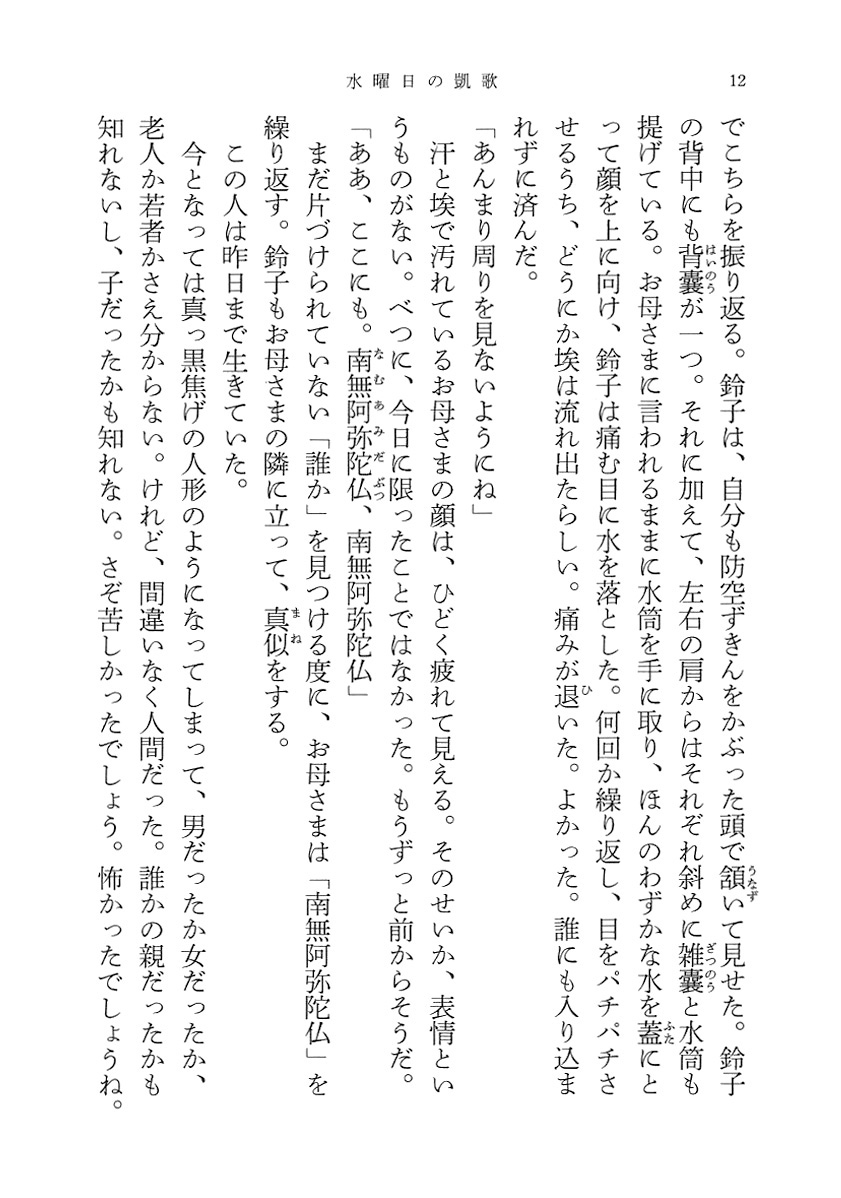 水曜日の凱歌
12
でこちらを振り返る。鈴子は、自分も防空ずきんをかぶった頭で頷いて見せた。鈴子
の背中にも背囊が一つ。それに加えて、左右の肩からはそれぞれ斜めに雑囊と水筒も
提げている。お母さまに言われるままに水筒を手に取り、ほんのわずかな水を蓋にと
って顔を上に向け、鈴子は痛む目に水を落とした。何回か繰り返し、目をパチパチさ
せるうち、どうにか埃は流れ出たらしい。痛みが退いた。よかった。誰にも入り込ま
れずに済んだ。
「あんまり周りを見ないようにね」
汗と埃で汚れているお母さまの顔は、ひどく疲れて見える。そのせいか、表情とい
うものがない。べつに、今日に限ったことではなかった。もうずっと前からそうだ。
「ああ、ここにも。南無阿弥陀仏、南無阿弥陀仏」
まだ片づけられていない「誰か」を見つける度に、お母さまは「南無阿弥陀仏」を
繰り返す。鈴子もお母さまの隣に立って、真似をする。
この人は昨日まで生きていた。
今となっては真っ黒焦げの人形のようになってしまって、男だったか女だったか、
老人か若者かさえ分からない。けれど、間違いなく人間だった。誰かの親だったかも
知れないし、子だったかも知れない。さぞ苦しかったでしょう。怖かったでしょうね。